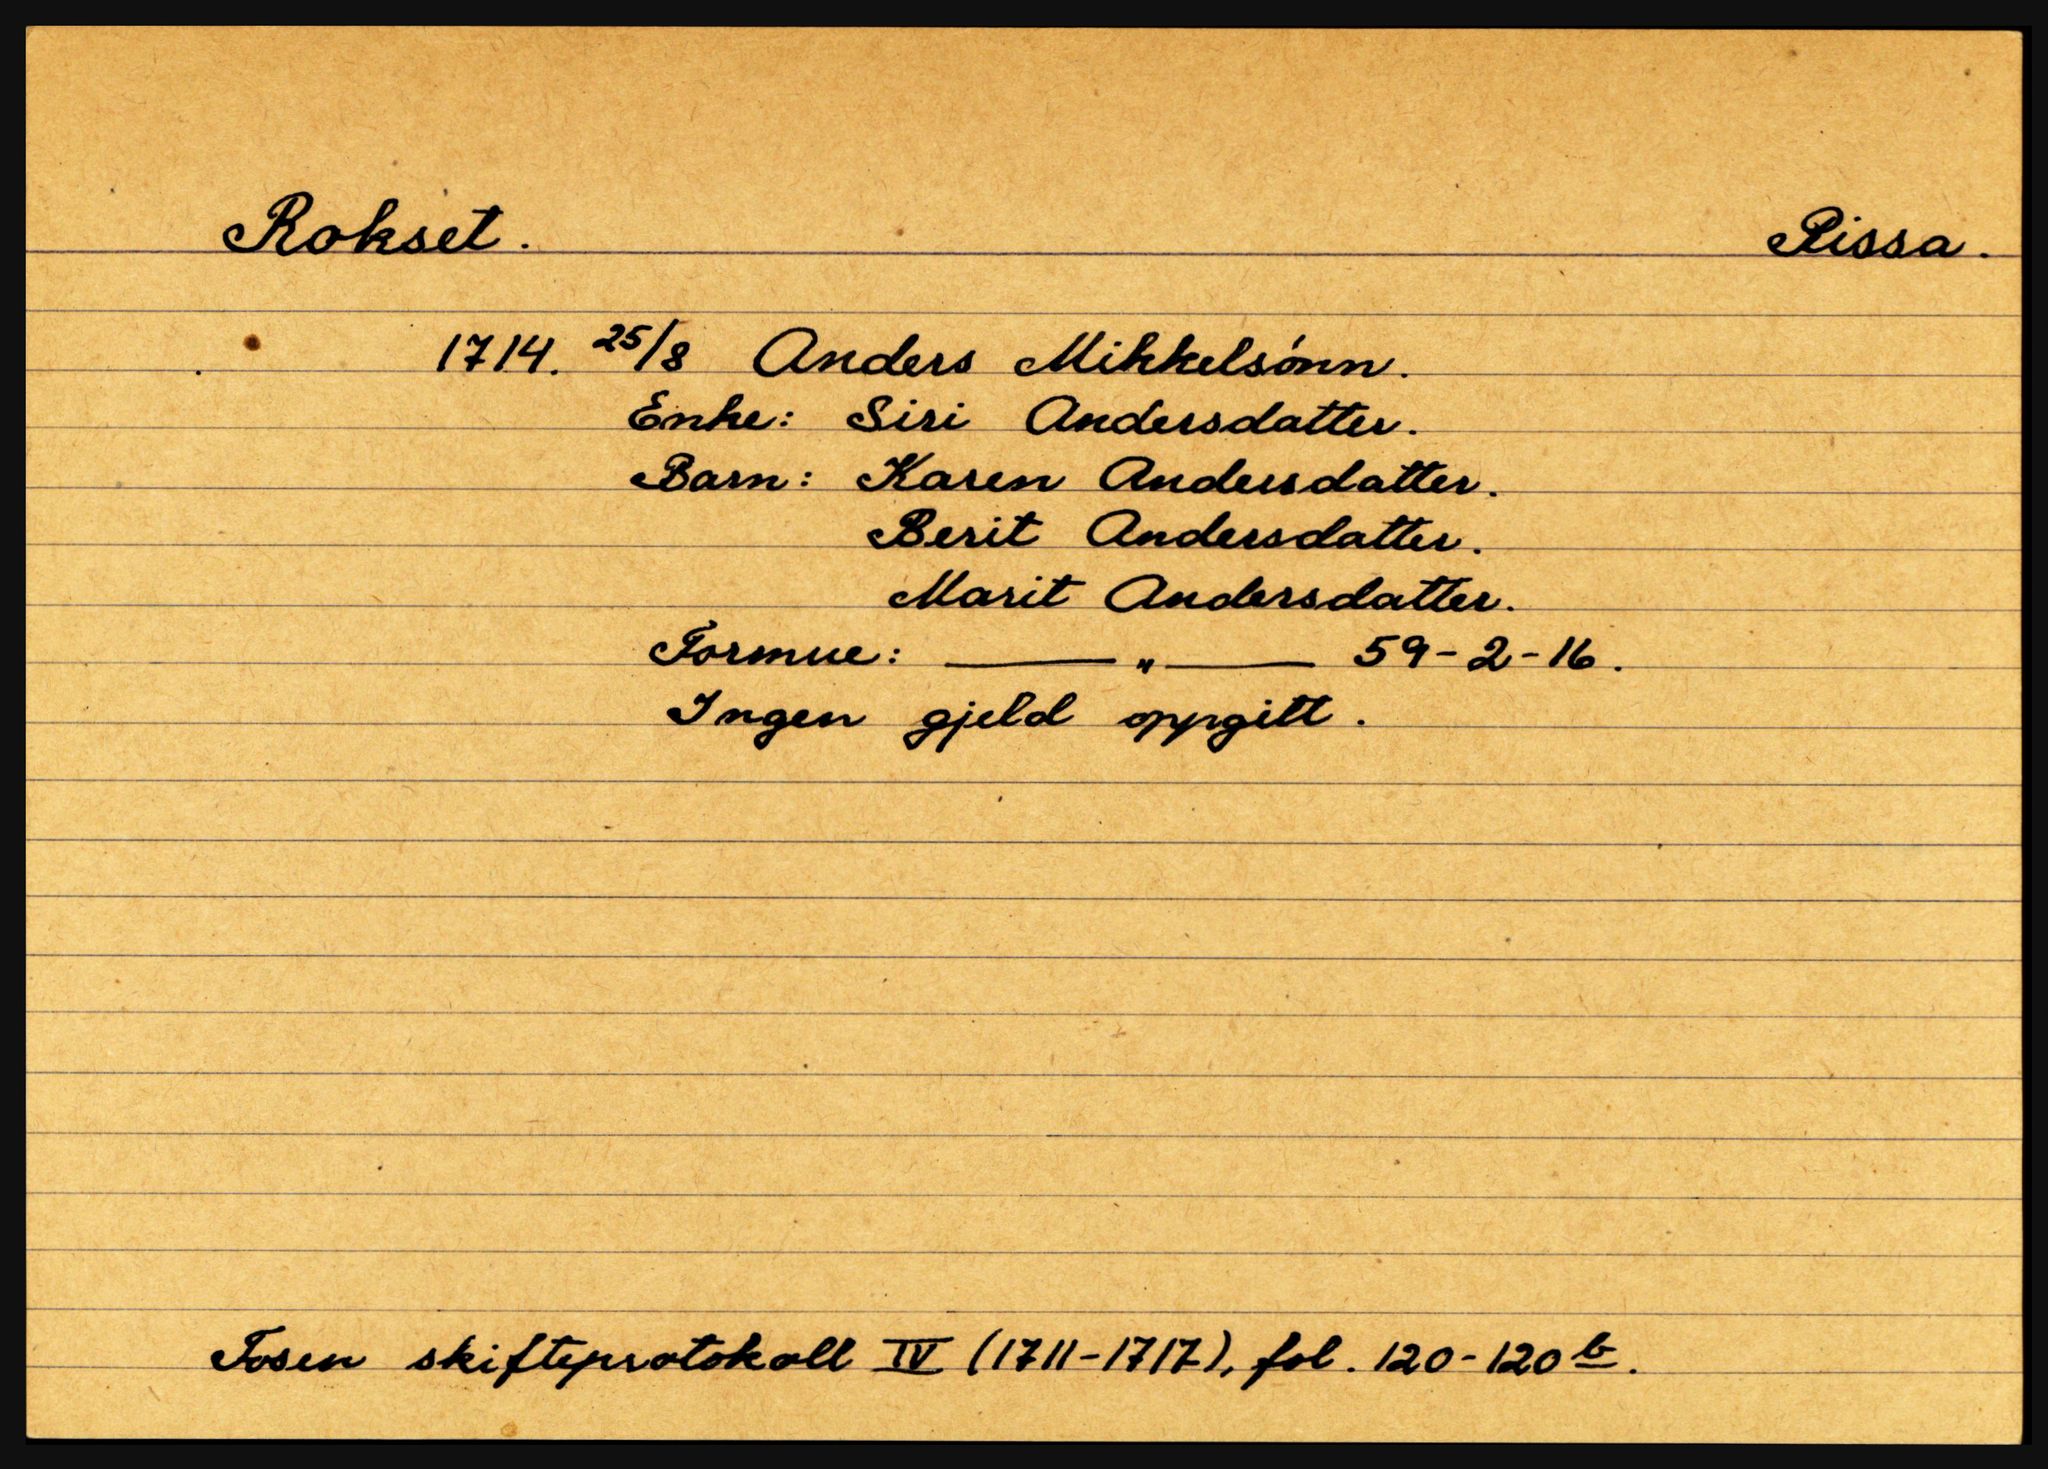 Rokset. Rissa.
1714. 25/8 Anders Mikkelsónn.
Enke: Siri Andersdatter.
Barn: Karen Andersdatter.
Berit Andersdatter.
Marit Andersdatter.
Formue: —— " —— 59-2-16.
Ingen gjeld oppgitt.
Fosen skifteprotokoll IV (1711-1717), fol. 120-120b.